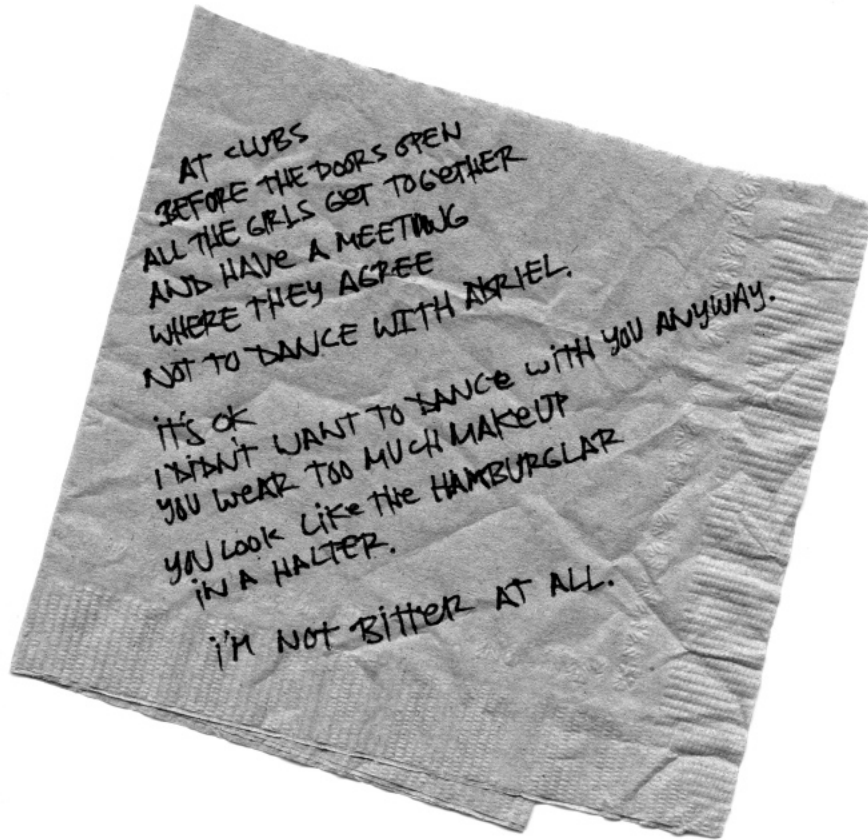 AT CLUBS
BEFORE THE DOORS OPEN
ALL THE GIRLS GET TOGETHER
AND HAVE A MEETING
WHERE THEY AGREE
NOT TO DANCE WITH ADRIEL.
IT'S OK
I DIDN'T WANT TO DANCE WITH YOU ANYWAY.
YOU WEAR TOO MUCH MAKEUP
YOU LOOK LIKE THE HAMBURGLAR
IN A HALTER.
I'M NOT BITTER AT ALL.